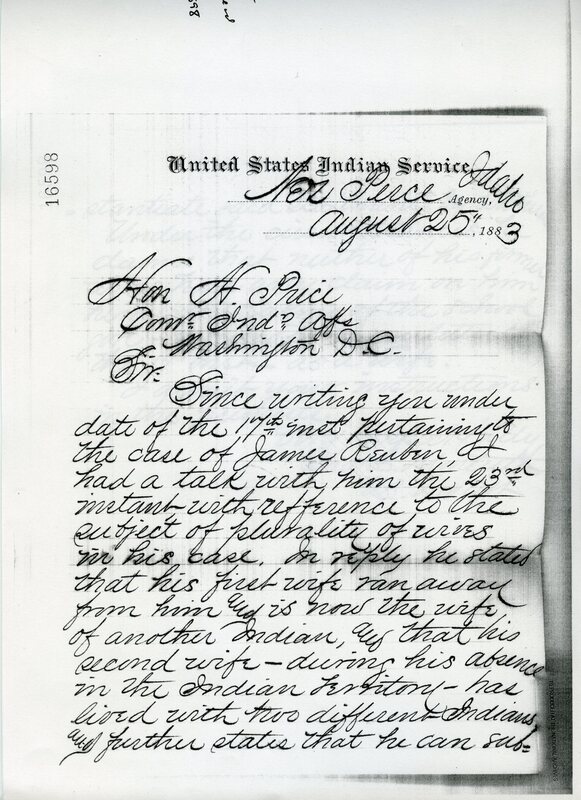 16598
United States Indian Service,
Nez Perce Agency, Idaho
August 25", 1883
Hon H. Price
Comr. Indn. Affs
Washington D.C.
Sir:
Since writing you under
date of the 17th inst pertaining to
the case of James Reuben, I
had a talk with him the 23rd
instant with refference to the
subject of plurality of wives
in his case. In reply he states
that his first wife ran away
from him and is now the wife
of another Indian, and that his
second wife – during his absence
in the Indian Territory – has
lived with two different Indians,
and further states that he can sub=